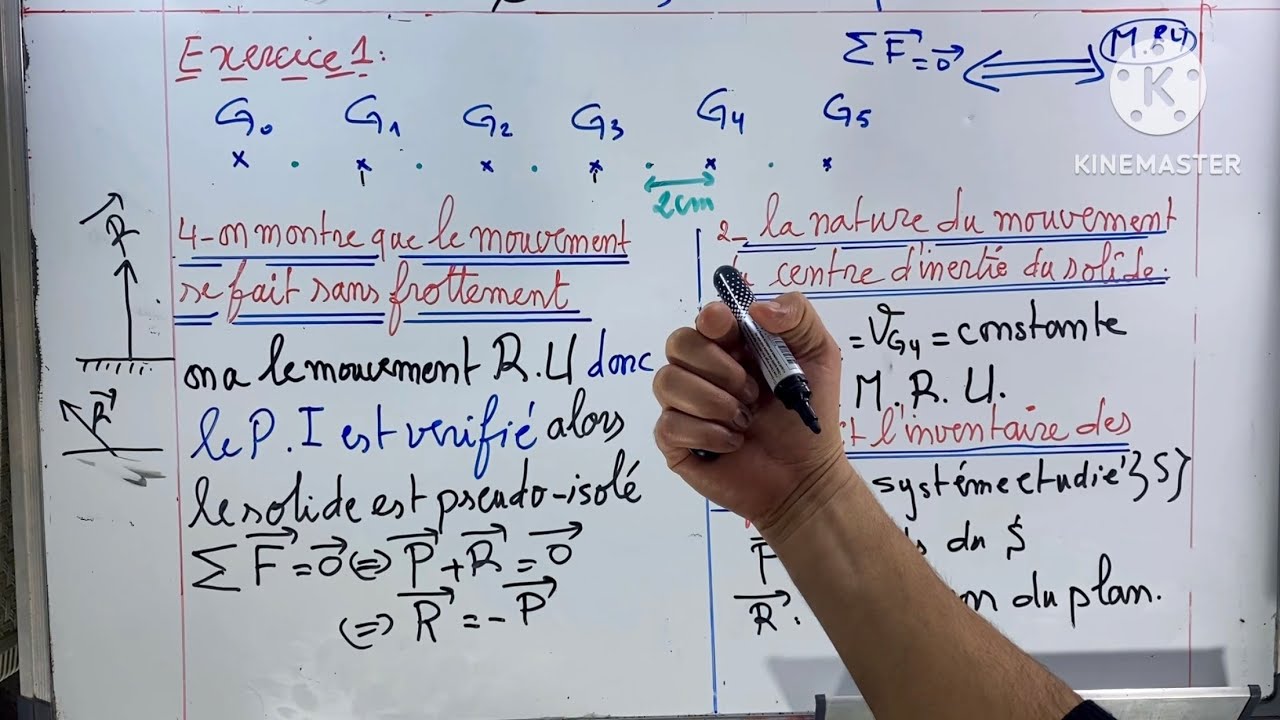 Exercice 1:
ΣF⃗=0⃗ ⟺ M.R.U
KINEMASTER
G₀ G₁ G₂ G₃ G₄ G₅
2cm
R⃗
R⃗
4-on montre que le mouvement
se fait sans frottement
on a le mouvement R.U donc
le P.I est vérifié alors
le solide est pseudo-isolé
ΣF⃗=0⃗ (=) P⃗+R⃗=0⃗
(=) R⃗=-P⃗
2- la nature du mouvement
centre d'inertie du solide.
=V_G₄ = constante
M.R.U.
l'inventaire des
système etudié {S}
du S
R⃗: du plan.